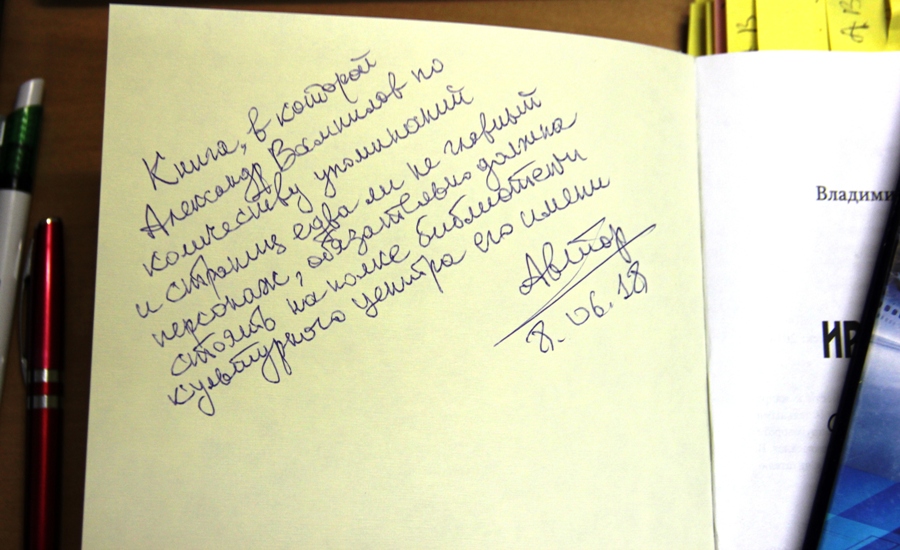 Книга, в которой
Александр Вампилов по
количеству упоминаний
и страниц едва ли не главный
персонаж, обязательно должна
стоять на полке библиотеки
культурного центра его имени
Автор
8.06.18
В
А В
Владими
ИР